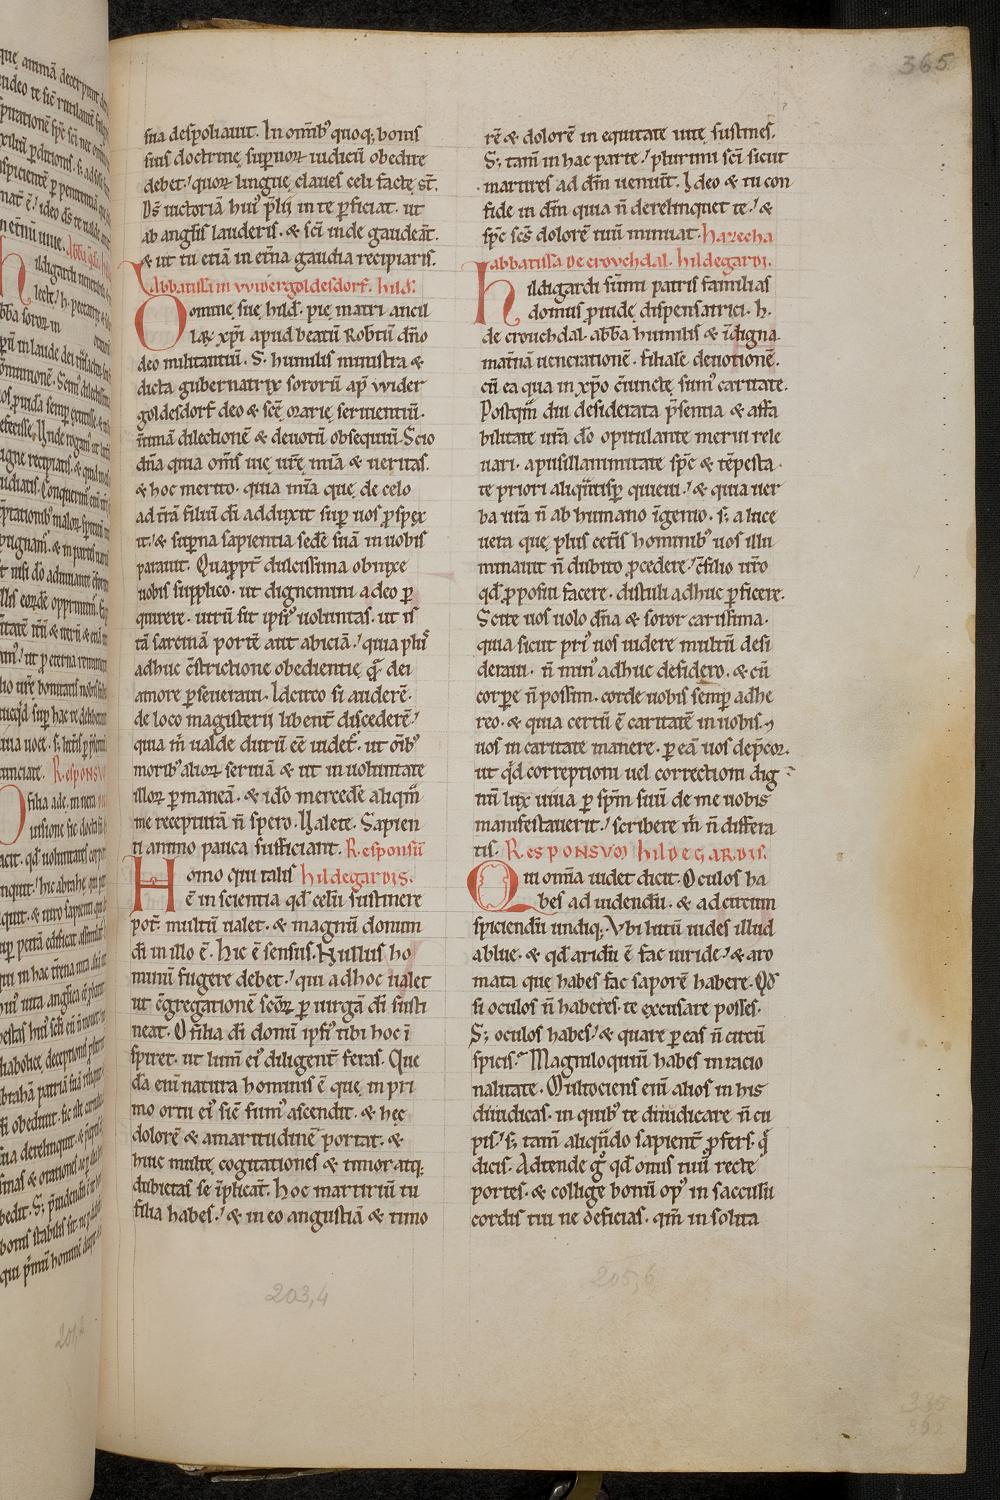 365
sua despoliauit. In om̄ib' quoq; bonis
suis doctrinę sup̄noꝝ iudiciū obedire
debet.' quoꝝ linguę claues celi factę st̄.
D̄s uictoriā hui' p̄lij in te ꝑficiat. ut
ab angl̄is lauderis. & sc̄i inde gaudeāt.
& ut tu etiā in et̄na gaudia recipiaris.
Abbatissa in vvidergoldesdorf. hild'.
Domine suę hild'. pię matri ancil
laꝝ xp̄i apud beatū Rob̄tū dn̄o
deo militantiū. S. humilis ministra &
dicta gubernatrix sororū ap̄ wider
goldesdorf deo & sc̄ę marię seruientiū.
int̄imā dilectionē & deuotū obsequiū. Scio
dn̄a quia om̄s uię ur̄ę mīa & ueritas.
& hoc merito. quia mīa quę de celo
ad t̄rā filiū dī adduxit sup̄ uos ꝓspex
it.' & sup̄na sapientia sedē suā in uobis
parauit. Quapp̄t dulcissima obnixe
uobis supplico. ut dignemini a deo ꝑ
quirere. utrū sit ipsi' uoluntas. ut is
tā sarcinā portē aut abiciā.' quia plus
adhuc c̄strictione obedientię q̄ dei
amore ꝑseueraui. Idcirco si auderē.
de loco magisterii libent̄ discederē.'
quia m̄ ualde durū ēē uidet̄. ut ōib'
morib' alioꝝ seruiā & ut in uoluntate
illoꝝ ꝑmaneā. & idō mercedē aliqm̄
me recepturā n̄ spero. Ualete. Sapien
ti animo pauca sufficiant. Responsū
Homo qui talis hildegardis.
ē in scientia qd̄ celū sustinere
pot̄. multū ualet. & magnū donum
dī in illo ē. Hic ē sensus. Nullus ho
minū fugere debet.' qui adhoc ualet
ut c̄gregationē sc̄oꝝ ꝑ uirgā dī susti
neat. O filia dī donū ipsi' tibi hoc ī
spiret. ut lum̄ ei' diligent̄ feras. Que
dā eni natura hominis ē quę in pri
mo ortu ei' sic̄ fum' ascendit. & hęc
dolorē & amaritudinē portat. &
huic multę cogitationes & timor atq;
dubietas se īplicat̄. Hoc martiriū tu
filia habes.' & in eo angustiā & timo
203,4
rē & dolorē in equitate uitę sustines.
S; tam̄ in hac parte.' plurimi sc̄i sicut
martires ad dm̄ uenūt. Ideo & tu con
fide in dm̄ quia n̄ derelinquet te.' &
sp̄c sc̄s dolorē tuū minuat. hazecha
abbatissa de crouchdal. hildegardi.
hildigardi sūmi patris familias
domus ꝓuidę dispensatrici. h.
de crouchdal. abb̄a humilis & īdigna
mat̄nā uenerationē. filiale deuotionē.
cū ea qua in xp̄o c̄iunctę sum' caritate.
Postqm̄ diu desiderata p̄sentia & affa
bilitate ur̄a dō opitulante merui rele
uari. a pusillanimitate sp̄c & tēpesta
te priori aliqn̄tisp̄ quieui.' & quia uer
ba ur̄a n̄ ab humano īgenio. s; a luce
uera quę plus cet̄is hominib' uos illu
minauit n̄ dubito ꝓcedere.' c̄silio ur̄o
qd̄ ꝓposui facere. distuli adhuc ꝑficere.
Scire uos uolo dn̄a & soror carissima.
quia sicut pri' uos uidere multū desi
deraui. n̄ min' adhuc desidero. & cū
corꝑe n̄ possim. corde uobis semꝑ adhe
reo. & quia certū ē caritatē in uobis. ⁊
uos in caritate manere. ꝑ eā uos dep̄coꝝ.
ut qd̄ correptioni uel correctioni dig
nū lux uiua ꝑ sp̄m suū de me uobis
manifestauerit.' scribere m̄ n̄ differa
tis. Responsvm hildegardis.
Qui omīa uidet dicit. Oculos ha
bes ad uidendū. & ad circum
spiciendū undiq;. Vbi lutū uides illud
ablue. & qd̄ aridū ē fac uiride.' & aro
mata que habes fac saporē habere. Qd̄
si oculos n̄ haberes. te excusare posses.
S; oculos habes.' & quare ꝑ eas n̄ circū
spicis.? Magniloquiū habes in racio
nalitate. Multociens eni alios in his
diiudicas. in quib' te diiudicare n̄ cu
pis.' s; tam̄ aliqn̄do sapient̄ ꝓfers. q̄
dicis. Adtende g̊ qd̄ onus tuū recte
portes. & collige bonū op' in sacculū
cordis tui ne deficias. qm̄ in solita
205,6